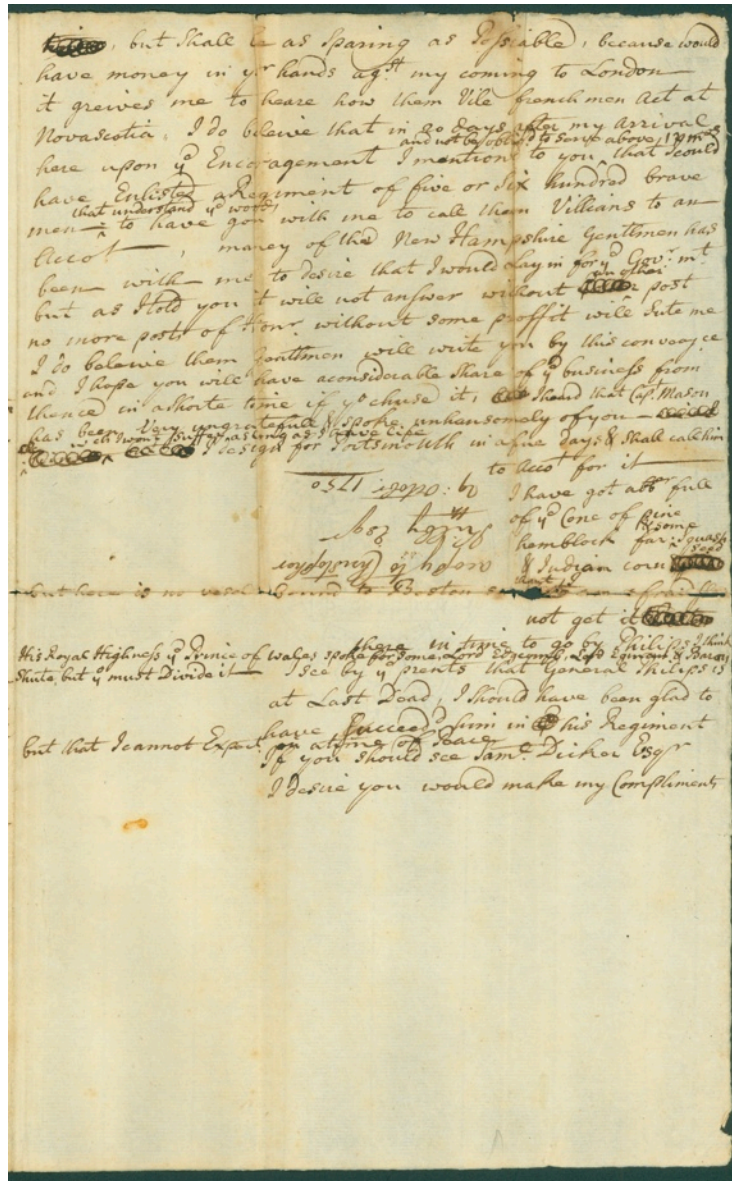 but Shall be as Sparing as Possiable, because would
have money in yr hands agst my coming to London
it greives me to heare how them Vile french men Act at
Novascotia, I do beleive that in 20 days after my Arrival
and not be oblig'd to serve above 12 mos
here upon ye Encoragement I mention to you, that I could
have Enlisted a Regiment of five or Six hundred brave
that understand ye woods
men to have gon with me to call them Villians to an
Accot, maney of the New Hampshire Gentlmen has
been with me to desire that I would Lay in for ye Govr mt
an other
but as I told you it will not answer without post
no more posts of Honr without some proffit will Sute me
I do beleive them Gentlmen will write you by this conveyce
and I hope you will have aconsiderable Share of ye business from
thence in ashorte time if yo chuse it, I heard that Capt Mason
has been Very ungratefull & spoke unhansomely of you
wch I wont Suffer as long as I have life
I design for Portsmouth in afue days & Shall call him
to Accot for it
I have got abbr full
of ye Cone of pine
& some
hemblock far: Squash
Seed
& Indian corn
but here is no vesal bound to Boston so that I am afraid
not get it
there in time to go by Philips I think
His Royal Highness ye Prince of Wales spoke for some, Lord Edgcomb, Lord Egmont, & Barory
Shute, but yo must Divide it
I see by ye prents that General Philips is
at Last Dead, I Should have been glad to
have Succeed'd him in his Regiment
but that I cannot Expect on atime of Peace
If you should see Saml Dicker Esqr
I desire you would make my Compliments
Christophr
Kilby Esqr
9: octobr 1750